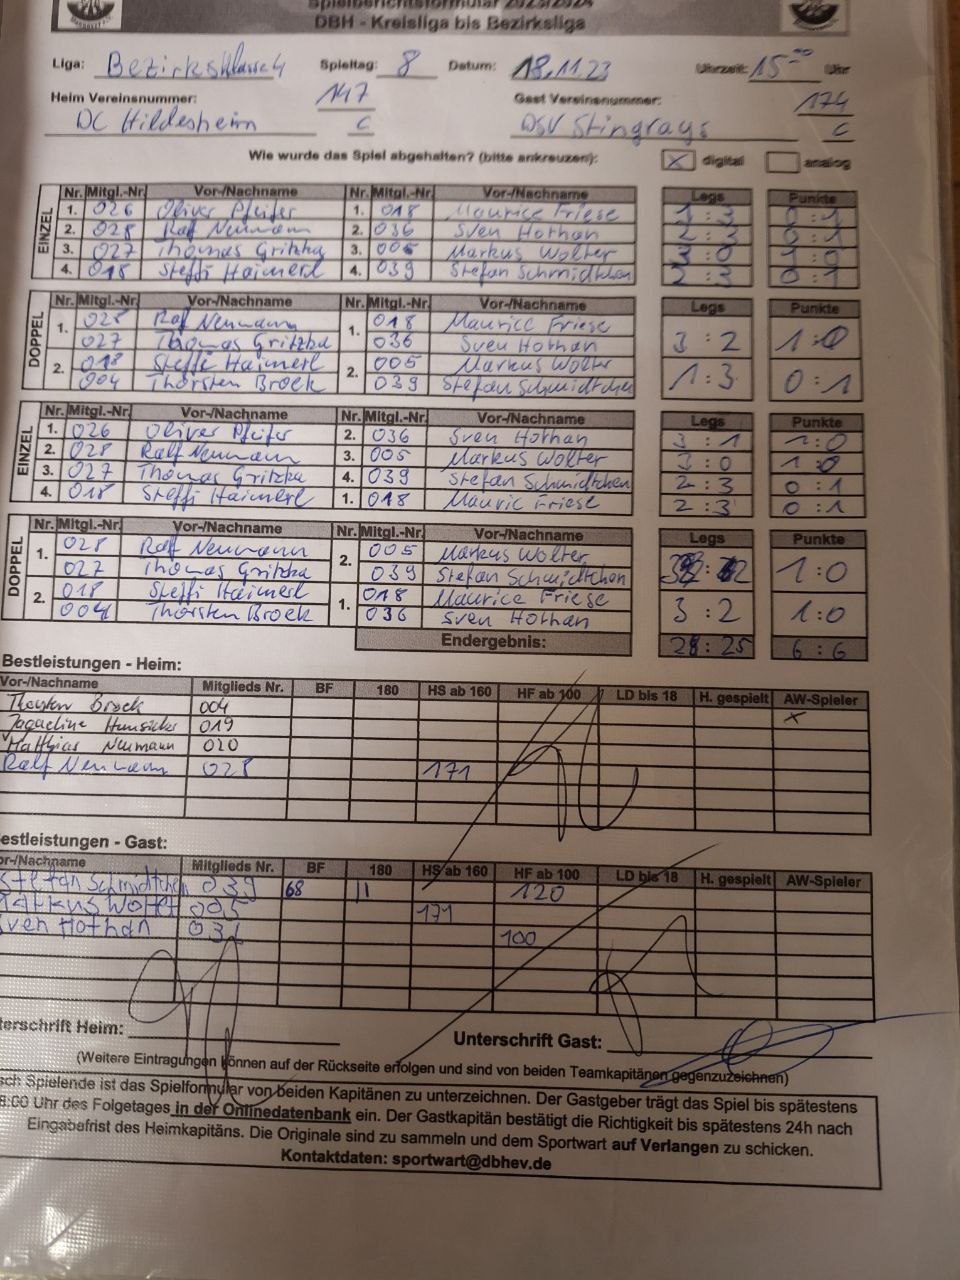 Spielberichtsformular 2023/2024
DBH - Kreisliga bis Bezirksliga
Liga: Bezirksklasse 4 Spieltag: 8 Datum: 18.11.23 Uhrzeit: 15 00 Uhr
Heim Vereinsnummer: 147 Gast Vereinsnummer: 174
DC Hildesheim C DSV Stingrays C
Wie wurde das Spiel abgehalten? (bitte ankreuzen): X digital analog
EINZEL Nr. Mitgl.-Nr Vor-/Nachname Nr. Mitgl.-Nr. Vor-/Nachname Legs Punkte
1. 026 Oliver Pfeifer 1. 018 Maurice Friese 1 : 3 0 : 1
2. 028 Ralf Neumann 2. 036 Sven Hothan 2 : 3 0 : 1
3. 027 Thomas Gritzka 3. 005 Markus Wolter 3 : 0 1 : 0
4. 018 Steffi Haimerl 4. 039 Stefan Schmidtchen 2 : 3 0 : 1
DOPPEL Nr. Mitgl.-Nr. Vor-/Nachname Nr. Mitgl.-Nr. Vor-/Nachname Legs Punkte
1. 028 Ralf Neumann 1. 018 Maurice Friese 3 : 2 1 : 0
027 Thomas Gritzka 036 Sven Hothan
2. 018 Steffi Haimerl 2. 005 Markus Wolter 1 : 3 0 : 1
004 Thorsten Brock 039 Stefan Schmidtchen
EINZEL Nr. Mitgl.-Nr. Vor-/Nachname Nr. Mitgl.-Nr. Vor-/Nachname Legs Punkte
1. 026 Oliver Pfeifer 2. 036 Sven Hothan 3 : 1 1 : 0
2. 028 Ralf Neumann 3. 005 Markus Wolter 3 : 0 1 : 0
3. 027 Thomas Gritzka 4. 039 Stefan Schmidtchen 2 : 3 0 : 1
4. 018 Steffi Haimerl 1. 018 Mauric Friese 2 : 3 0 : 1
DOPPEL Nr. Mitgl.-Nr. Vor-/Nachname Nr. Mitgl.-Nr. Vor-/Nachname Legs Punkte
1. 028 Ralf Neumann 2. 005 Markus Wolter 3 : 2 1 : 0
027 Thomas Gritzka 039 Stefan Schmidtchen
2. 018 Steffi Haimerl 1. 018 Maurice Friese 3 : 2 1 : 0
004 Thorsten Brock 036 Sven Hothan
Endergebnis: 28 : 25 6 : 6
Bestleistungen - Heim:
Vor-/Nachname Mitglieds Nr. BF 180 HS ab 160 HF ab 100 LD bis 18 H. gespielt AW-Spieler
Thorsten Brock 004 X
Jaqueline 019
Matthias Neumann 020
Ralf Neumann 028 171
estleistungen - Gast:
or-/Nachname Mitglieds Nr. BF 180 HS ab 160 HF ab 100 LD bis 18 H. gespielt AW-Spieler
Stefan Schmidtchen 039 68 11 120
Markus Wolter 005 171
Sven Hothan 100
terschrift Heim: Unterschrift Gast:
(Weitere Eintragungen können auf der Rückseite erfolgen und sind von beiden Teamkapitänen gegenzuzeichnen)
ach Spielende ist das Spielformular von beiden Kapitänen zu unterzeichnen. Der Gastgeber trägt das Spiel bis spätestens
8:00 Uhr des Folgetages in der Onlinedatenbank ein. Der Gastkapitän bestätigt die Richtigkeit bis spätestens 24h nach
Eingabefrist des Heimkapitäns. Die Originale sind zu sammeln und dem Sportwart auf Verlangen zu schicken.
Kontaktdaten: sportwart@dbhev.de